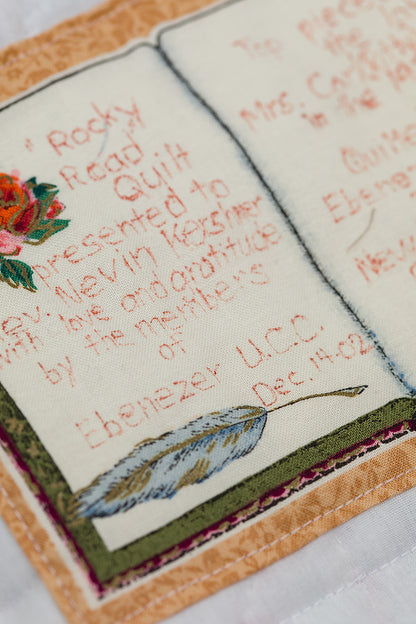 "Rocky
Road
Quilt
presented to
ev. Nevin Kershner
with love and gratitude
by the members
of
Ebenezer U.C.C.
Dec. 14.02
Top piec
the lo
Mrs. Ca
in the
Quilte
Ebenez
Nevi